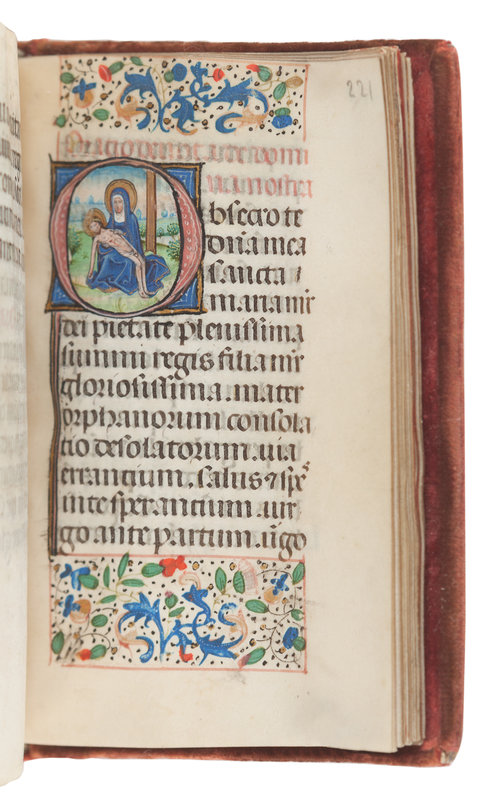 221
nostra
Obsecro te
dn̄a mea
sancta
maria mr̄
dei pietate plenissima
summi regis filia mr̄
gloriosissima. mater
orphanorum consola
tio desolatorum. via
errantium. salus ⁊ spe
in te sperantium. vir
go ante partum. v̄go